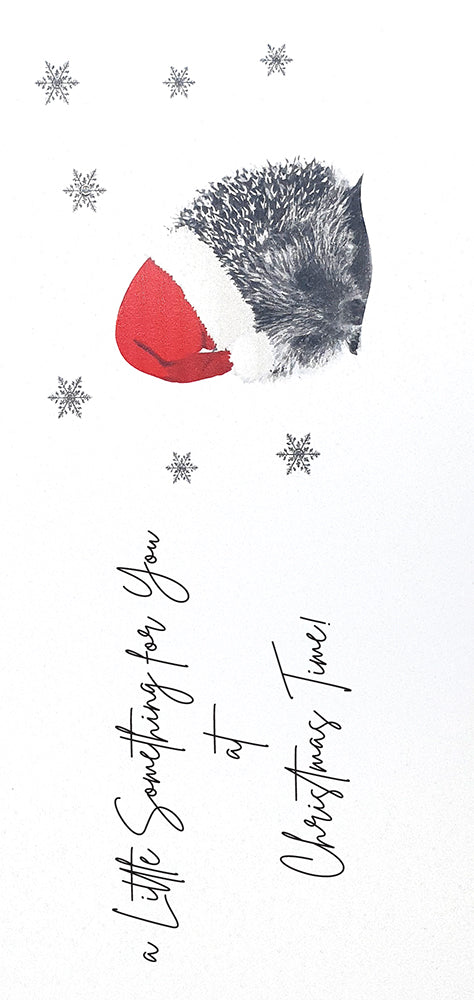 a Little Something for You
at
Christmas Time!